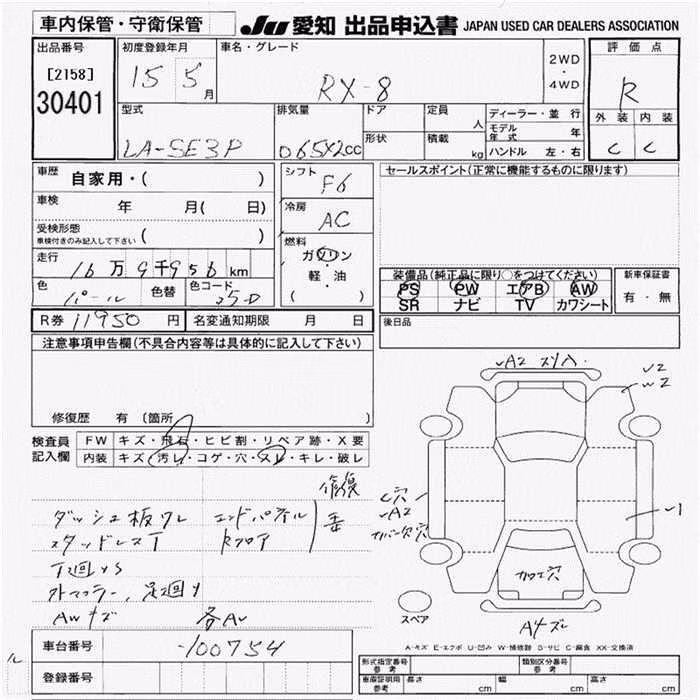 車内保管・守衛保管
JU 愛知 出品申込書 JAPAN USED CAR DEALERS ASSOCIATION
出品番号
[2158]
30401
初度登録年月
15 5 月
車名・グレード
RX-8
2WD
・
4WD
評価点
R
外装 内装
C C
型式
LA-SE3P
排気量
065X2cc
ドア
形状
定員
人
積載
kg
ディーラー・並行
モデル年式 年
ハンドル 左・右
車歴
自家用・( )
車検
年 月( 日)
受検形態
車検付きのみ記入して下さい ( )
走行
16万9千956km
色
パール
色替
色コード
25D
シフト
F6
冷房
AC
燃料
ガソリン
軽・油
( )
セールスポイント(正常に機能するものに限ります)
装備品(純正品に限り○をつけてください)
PS PW エアB AW
SR ナビ TV カワシート
新車保証書
有・無
R券 11950 円
名変通知期限 月 日
後日品
注意事項申告欄(不具合内容等は具体的に記入して下さい)
修復歴 有 (箇所
検査員
記入欄
FW キズ・飛石・ヒビ割・リペア跡・X要
内装 キズ・汚レ・コゲ・穴・スレ・キレ・破レ
修復
ダッシュ板ワレ エンドパネル
スタッドレスT Rフロア
T4回YS
外マフラー、足廻Y
AWキズ 各AU
A2 スリA
W2
C穴
A2
カバー欠穴
カワエ穴
スペア
A4ズレ
A-キズ E-エクボ U-凹み W-補修跡 S-サビ C-腐食 XX-交換済
車台番号
-100754
登録番号
型式指定番号
参考
類別区分番号
参考
車庫証明用
参考
長さ cm
幅 cm
高さ cm
ル